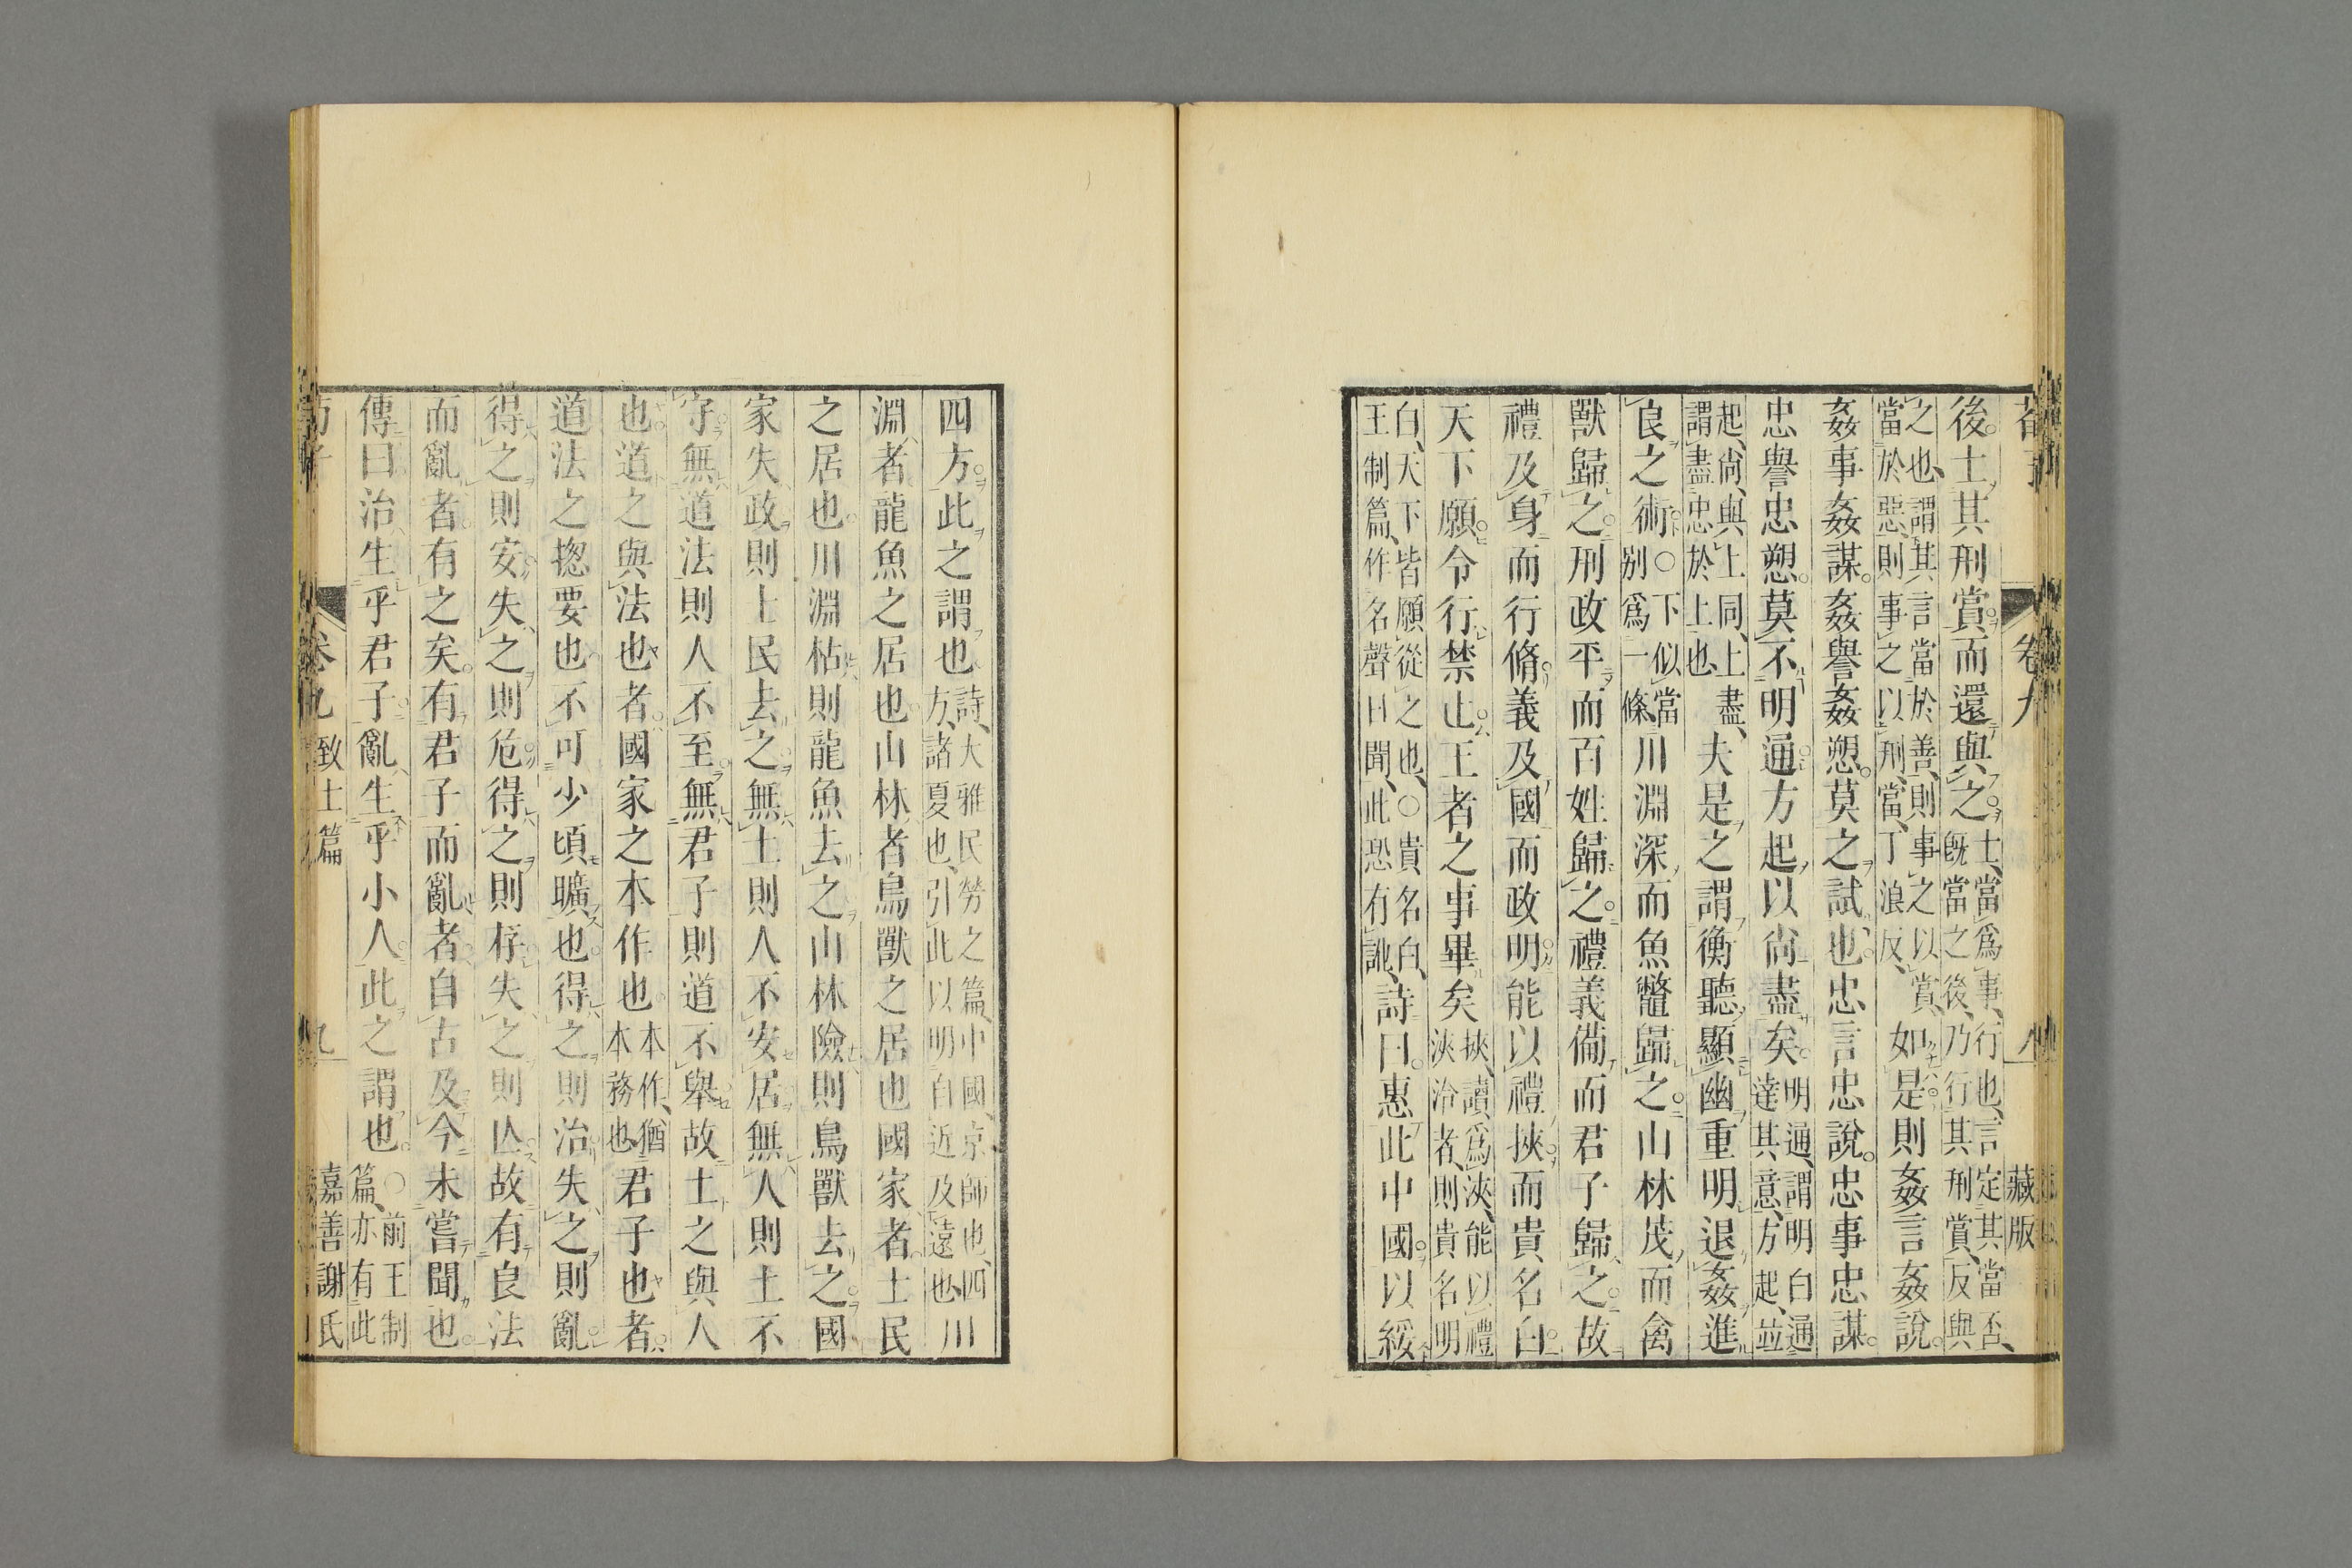 荀子 卷九 八 藏版
後士其刑賞而還與之士當爲事行也言定其當否
旣當之後乃行其刑賞反與
之也謂其言當於善則事之以賞
當於惡則事之以刑當丁浪反如是則姦言姦說
姦事姦謀姦譽姦愬莫之試也忠言忠說忠事忠謀
忠譽忠愬莫不明通方起以尙盡矣明通謂明白通
達其意方起並
起尙與上同上盡
謂盡忠於上也夫是之謂衡聽顯幽重明退姦進
良之術○下似當
別爲一條川淵深而魚鼈歸之山林茂而禽
獸歸之刑政平而百姓歸之禮義備而君子歸之故
禮及身而行脩義及國而政明能以禮挾而貴名白
天下願令行禁止王者之事畢矣挾讀爲浹能以禮
浹洽者則貴名明
白天下皆願從之也○貴名白
王制篇作名聲日聞此恐有訛詩曰惠此中國以綏
四方此之謂也詩大雅民勞之篇中國京師也四
方諸夏也引此以明自近及遠也川
淵者龍魚之居也山林者鳥獸之居也國家者士民
之居也川淵枯則龍魚去之山林險則鳥獸去之國
家失政則士民去之無土則人不安居無人則土不
守無道法則人不至無君子則道不舉故土之與人
也道之與法也者國家之本作也本作猶
本務也君子也者
道法之摠要也不可少頃曠也得之則治失之則亂
得之則安失之則危得之則存失之則亾故有良法
而亂者有之矣有君子而亂者自古及今未嘗聞也
傳曰治生乎君子亂生乎小人此之謂也○前王制
篇亦有此
荀子 卷九 致士篇 九 嘉善謝氏